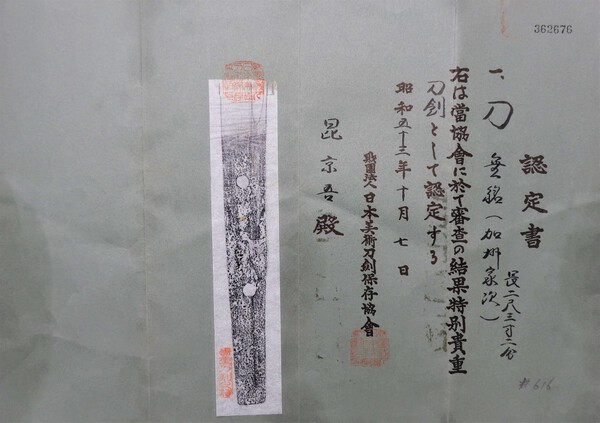 362676
認定書
一、刀 無銘（加州家次）
長二尺三寸二分
右は當協會に於て審査の結果特別貴重
刀剣として認定する
昭和五十三年十月七日
財團法人日本美術刀剣保存協會
昆京吾殿